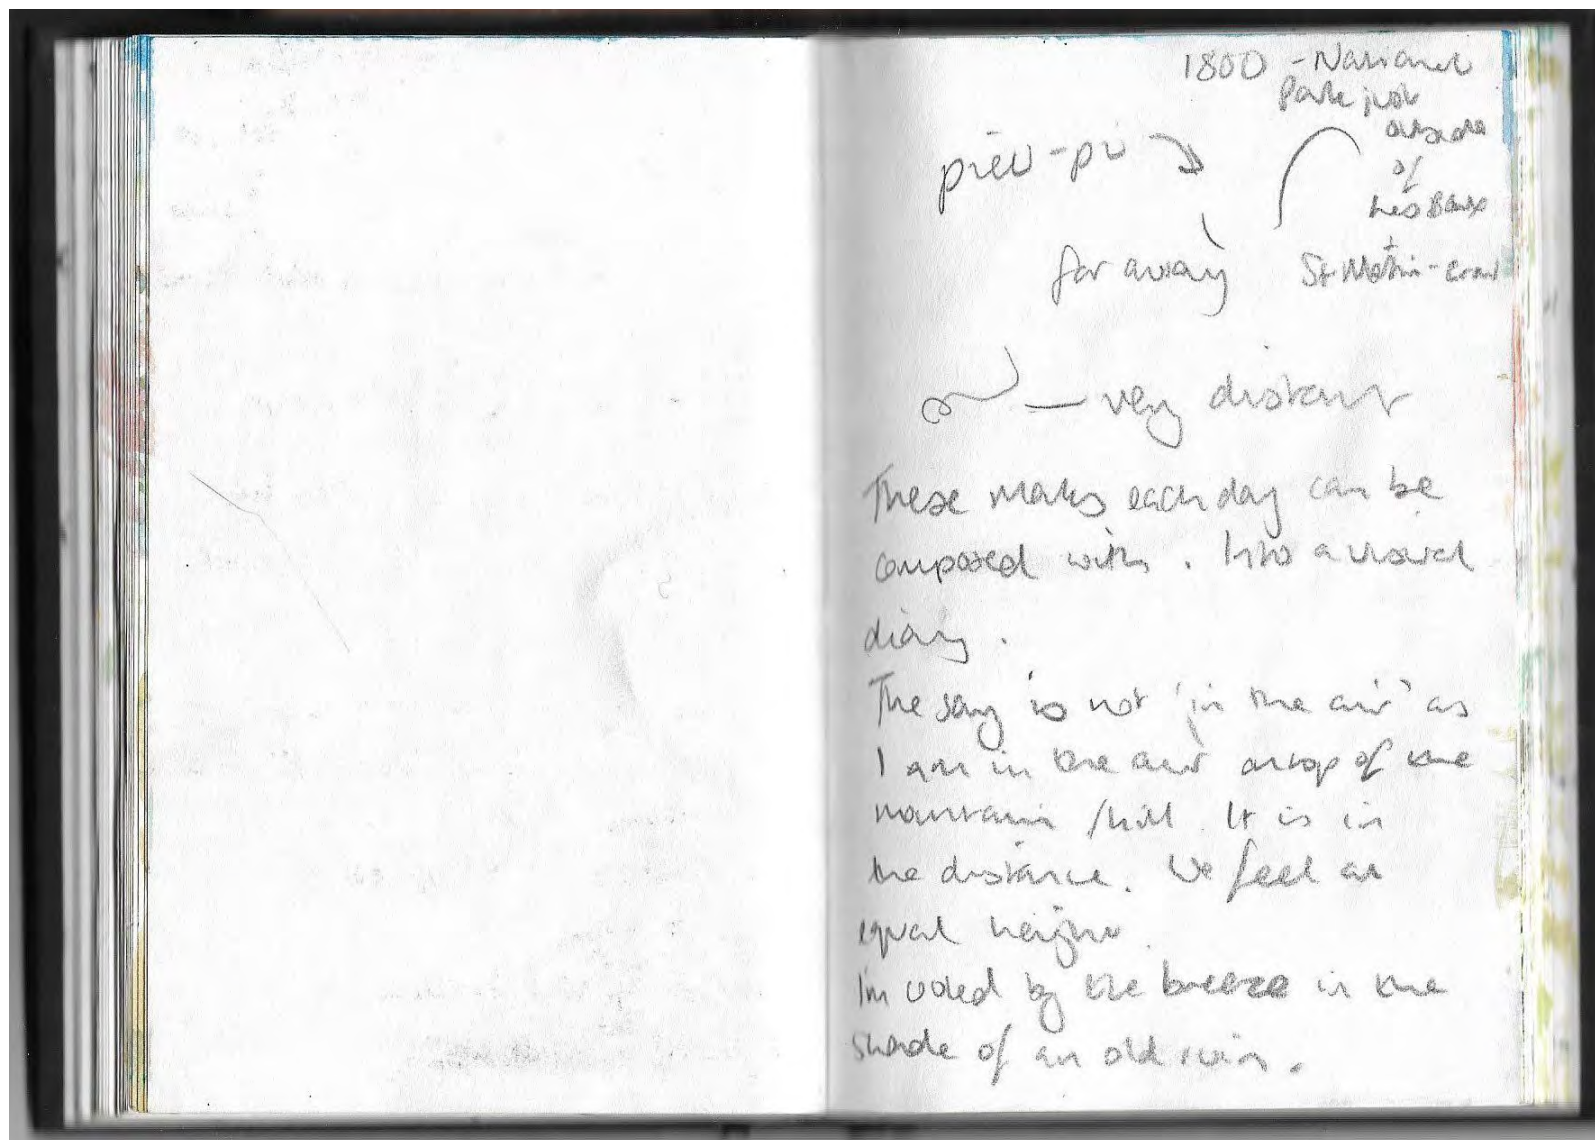 1800 - National
Park just
outside
of
Les Baux
+
St Martin-crau
piew-pi
far away
very distant
These marks each day can be
composed with. Into a visual
diary.
The song is not 'in the air' as
I am in the air ontop of the
mountain / hill. It is in
the distance. We feel at
equal height.
I'm cooled by the breeze in the
shade of an old ruin.